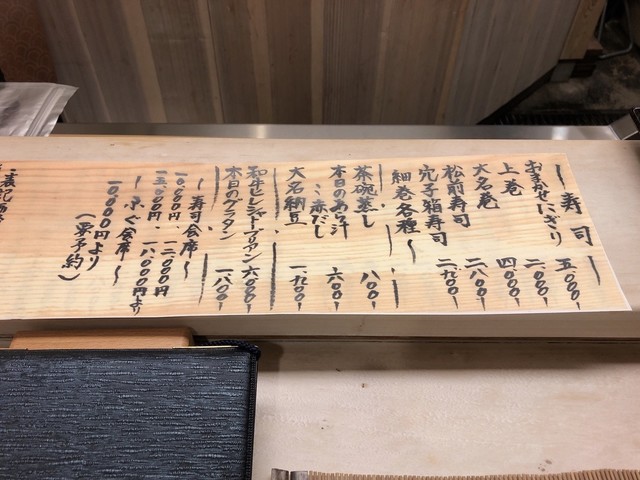 〜寿司〜
おまかせにぎり 五〇〇〇-
上巻 二〇〇〇-
大名巻 四〇〇〇-
松前寿司 二八〇〇-
穴子箱寿司 二九〇〇-
細巻各種〜
茶碗蒸し 八〇〇-
本日のあら汁 六〇〇-
〃 赤だし
大名納豆 一、九〇〇-
和牛ヒレジャーブリアン 六〇〇〇-
本日のグラタン 一、八〇〇-
〜寿司会席〜
一〇、〇〇〇円、一二、〇〇〇円
一五、〇〇〇円、一八、〇〇〇円より
〜ふぐ会席〜
一〇、〇〇〇円より
(要予約)